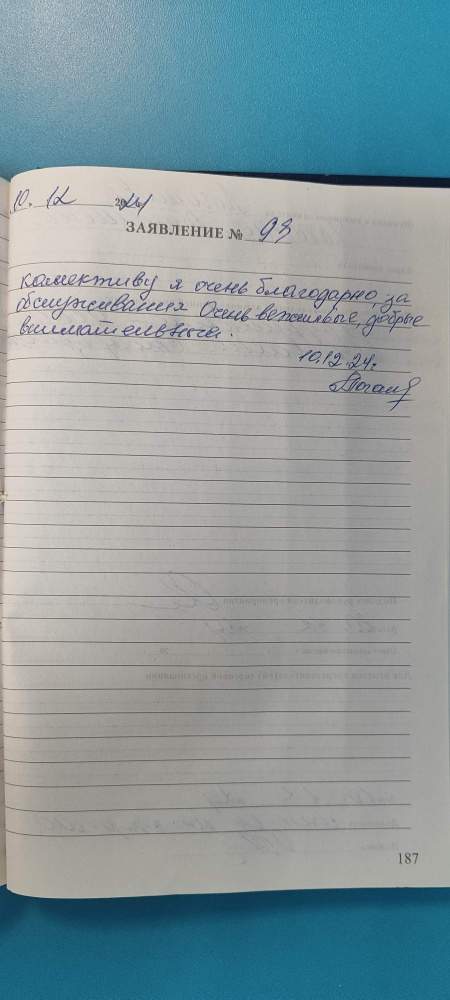 10. 12 2024
ЗАЯВЛЕНИЕ № 93
колективу я очень благодарно, за
обслуживания Очень вежливые, добрые
внимательные.
10.12.24г.
187